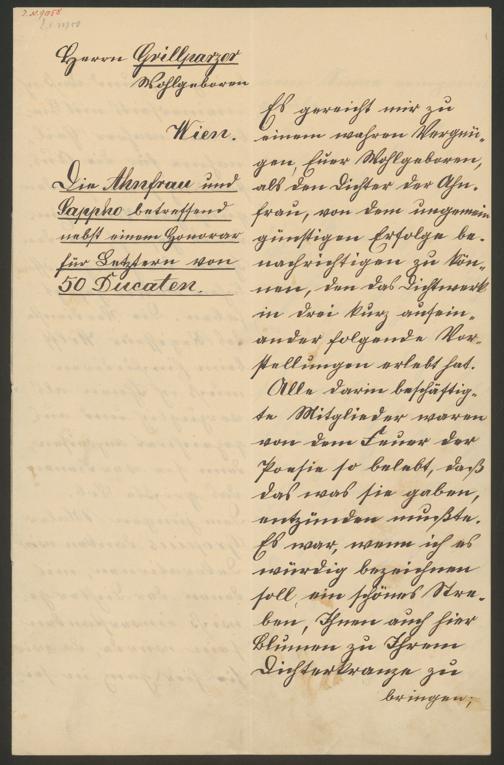 Herrn Grillparzer
Wohlgeboren
Wien.
Die Ahnfrau und
Sappho betreffend
nebst einem Honorar
für Letztern von
50 Ducaten.
Es gereicht mir zu
einem wahren Vergnü-
gen, Euer Wohlgeboren,
als den Dichter der Ahn-
frau, von dem ungemein
günstigen Erfolge be-
nachrichtigen zu kön-
nen, den das Dichtwerk
in drei kurz aufein-
ander folgende Vor-
stellungen erlebt hat.
Alle darin beschäftig-
te Mitglieder waren
von dem Feuer der
Poesie so belebt, daß
das was sie gaben,
entzünden mußte.
Es war, wenn ich es
würdig bezeichnen
soll, ein schönes Stre-
ben, Ihnen auch hier
Blumen zu Ihrem
Dichterkranze zu
bringen;